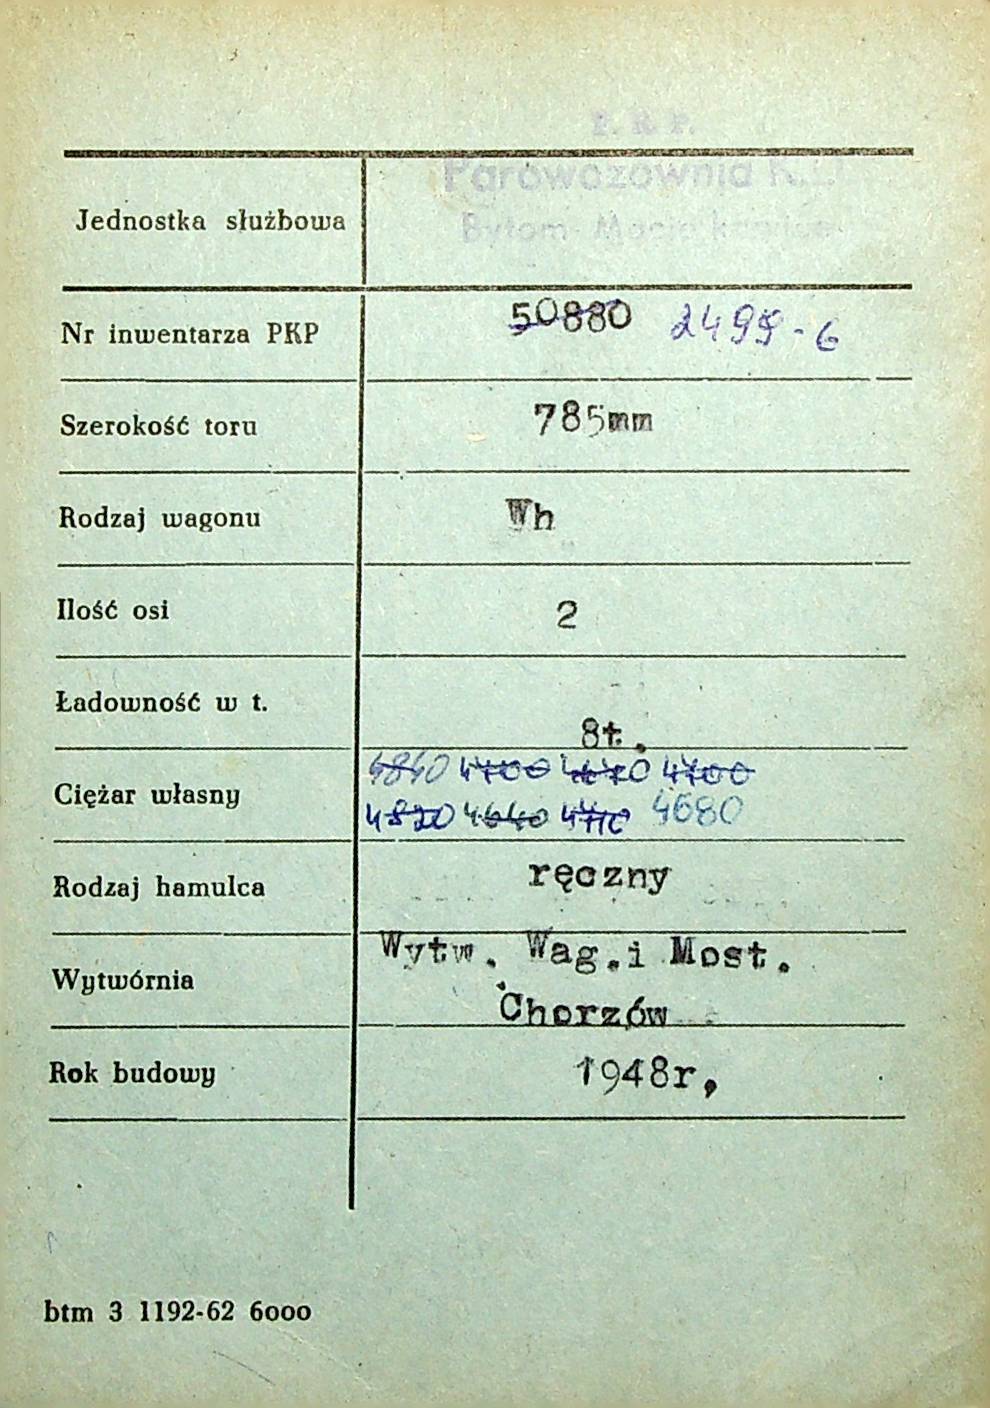 P. K. P.
Parowozownia K.D.
Bytom
Jednostka służbowa
Nr inwentarza PKP 50880 2499-6
Szerokość toru 785mm
Rodzaj wagonu Wh
Ilość osi 2
Ładowność w t. 8t.
4840 4700 4670 4700
Ciężar własny
4820 4640 4710 4680
Rodzaj hamulca ręczny
Wytw. Wag.i Most.
Wytwórnia
Chorzów
Rok budowy 1948r,
btm 3 1192-62 6000